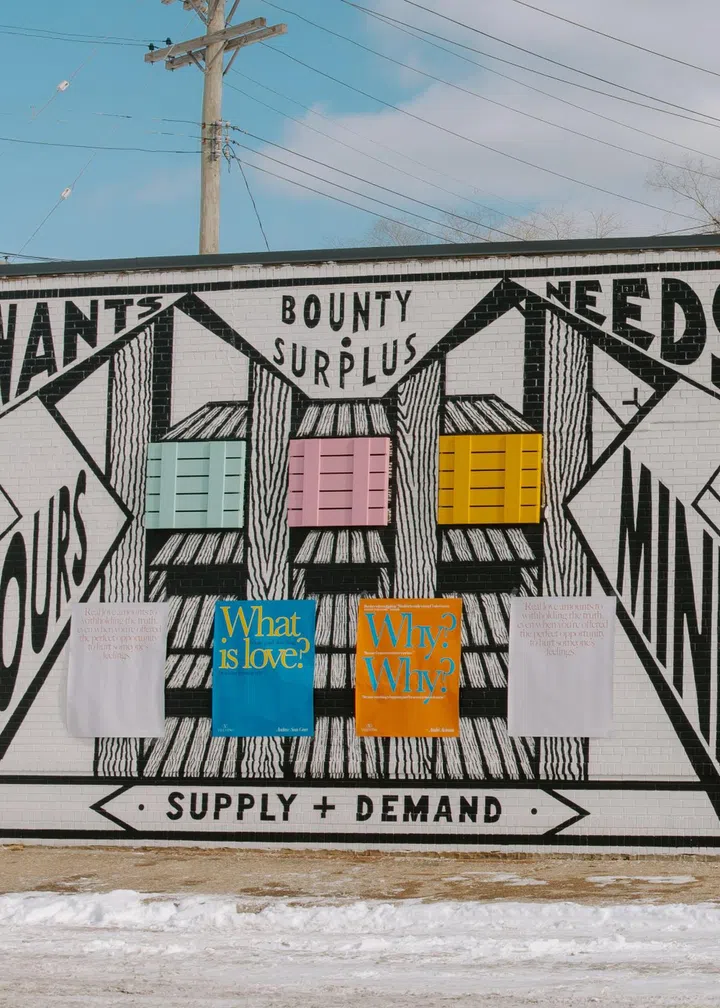 WANTS
BOUNTY
SURPLUS
NEEDS
OURS
MIN
Real love amounts to
withholding the truth,
even when you're offered
the perfect opportunity
to hurt someone's
feelings
What
is love?
Why?
Why?
Real love amounts to
withholding the truth,
even when you're offered
the perfect opportunity
to hurt someone's
feelings
SUPPLY + DEMAND